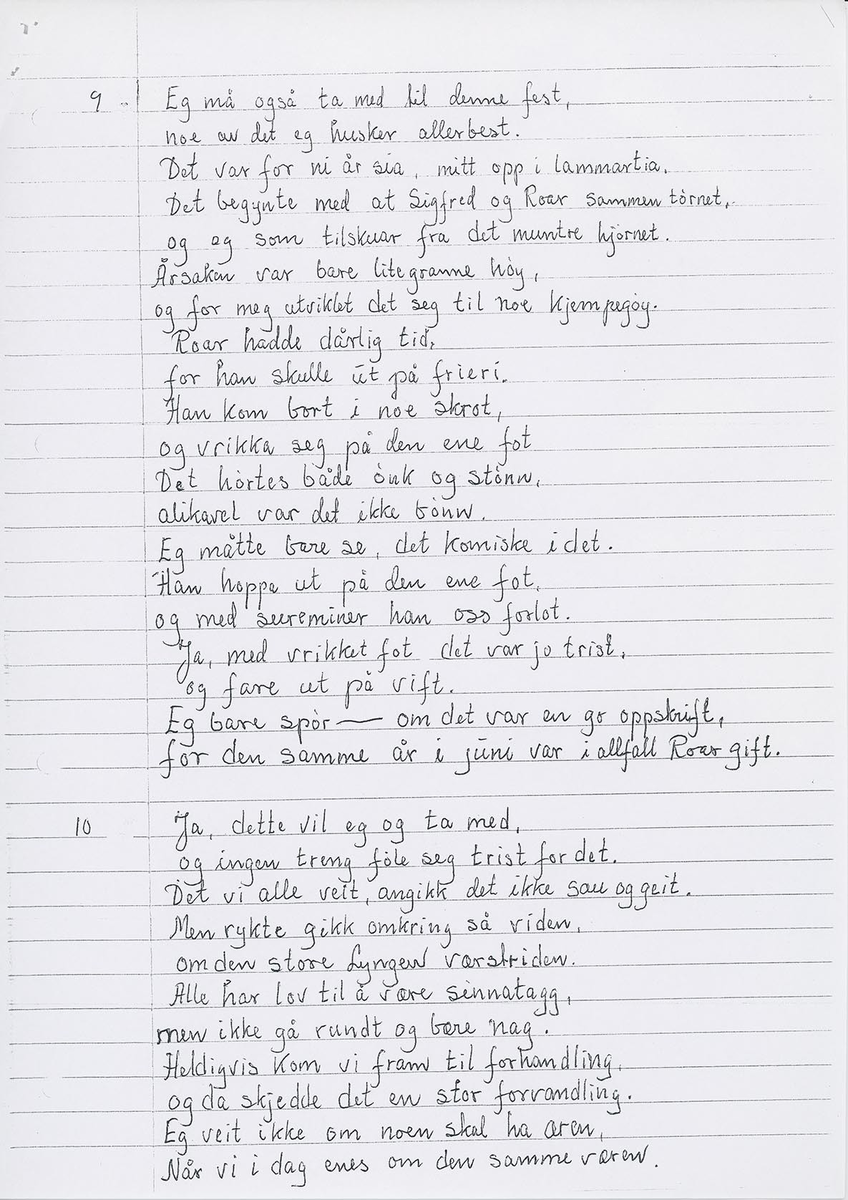 9 Eg må også ta med til denne fest,
noe av det eg husker allerbest.
Det var for ni år sia, mitt opp i lammartia.
Det begynte med at Sigfred og Roar sammen tòrnet,
og eg som tilskuar fra det muntre hjòrnet.
Årsaken var bare litegranne hòy,
og for meg utviklet det seg til noe kjempegòy.
Roar hadde dårlig tid,
for han skulle ut på frieri.
Han kom bort i noe skrot,
og vrikka seg på den ene fot
Det hòrtes både ònk og stònn,
alikavel var det ikke bònn.
Eg måtte bare se, det komiske i det.
Han hoppa ut på den ene fot,
og med sureminer han oss forlot.
Ja, med vrikket fot det var jo trist,
og fare ut på vift.
Eg bare spòr — om det var en go oppskrift,
for den samme år i juni var i allfall Roar gift.
10 Ja, dette vil eg og ta med,
og ingen treng fòle seg trist for det.
Det vi alle veit, angikk det ikke sau og geit.
Men rykte gikk omkring så viden,
om den store Lyngen værstriden.
Alle har lov til å være sinnatagg,
men ikke gå rundt og bære nag.
Heldigvis kom vi fram til forhandling,
og da skjedde det en stor forvandling.
Eg veit ikke om noen skal ha æren,
Når vi i dag enes om den samme væren.